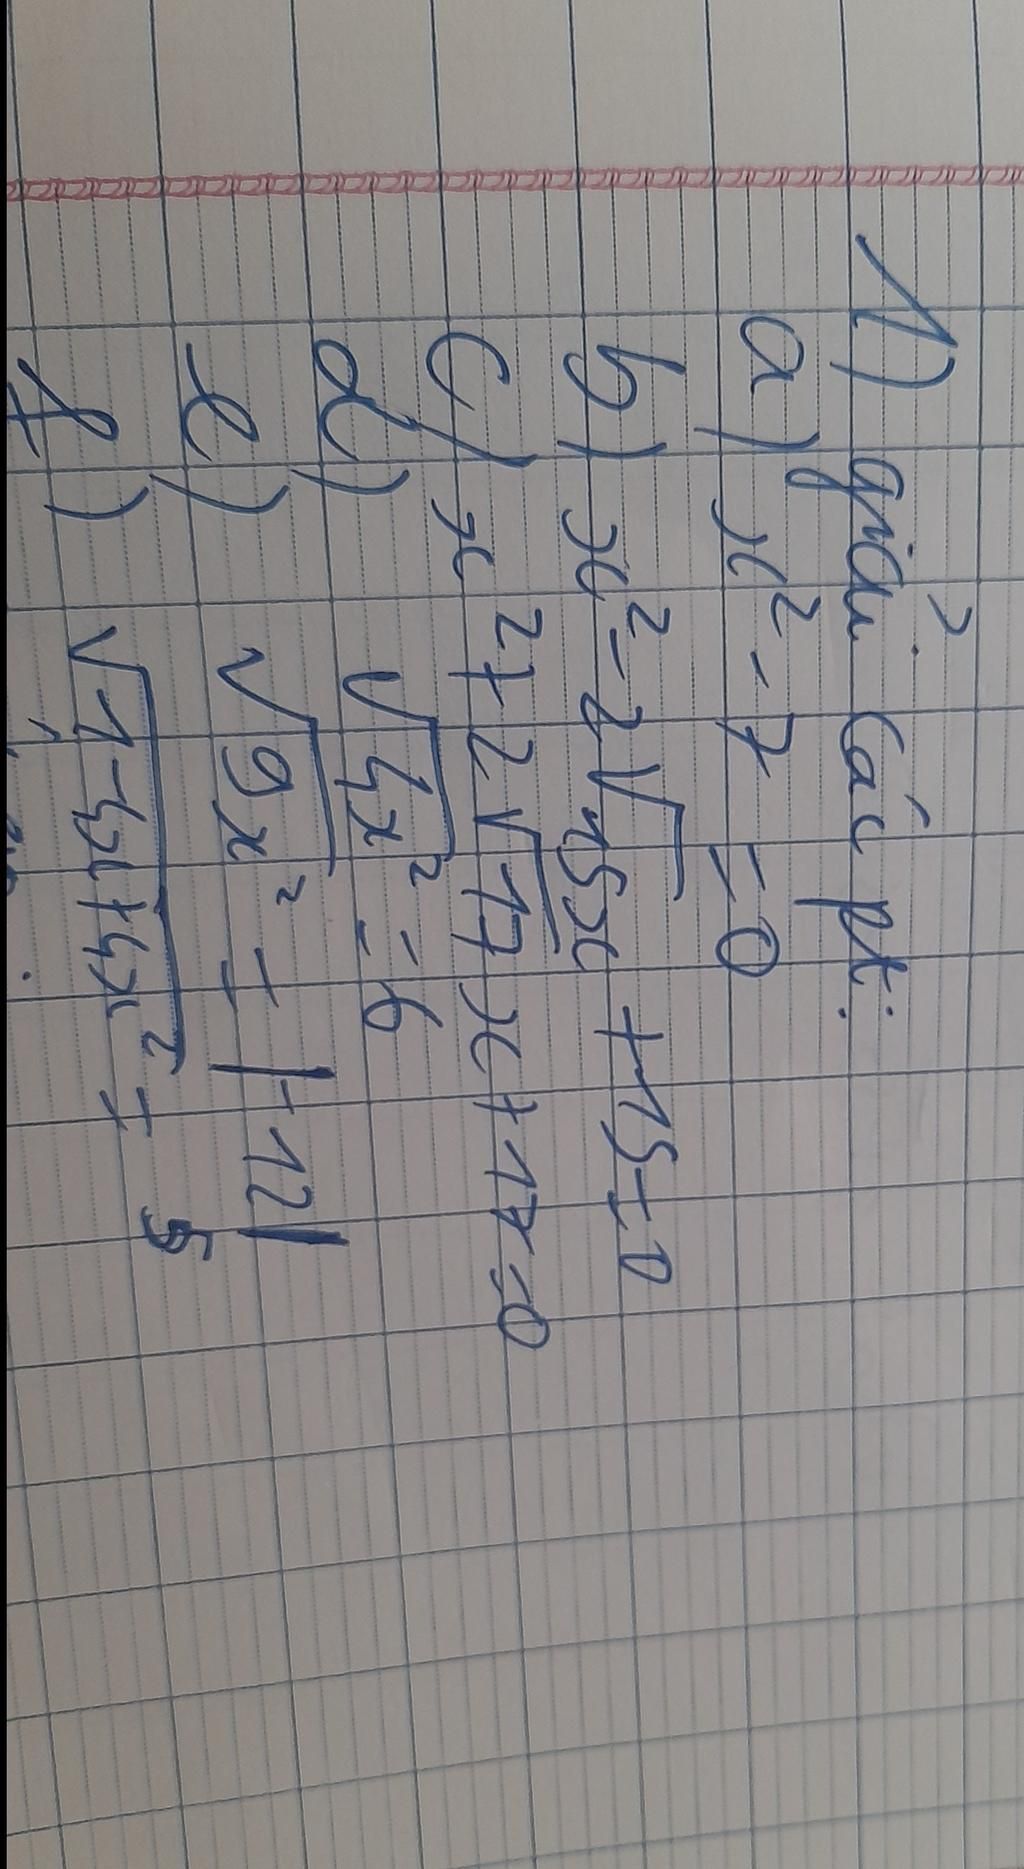 1) giải các pt:
a) x² - 7 = 0
b) x² - 2√15x + 15 = 0
c) x² + 2√17x + 17 = 0
d) √4x² = 6
e) √9x² = |-12|
f) √1-4x+4x² = 5